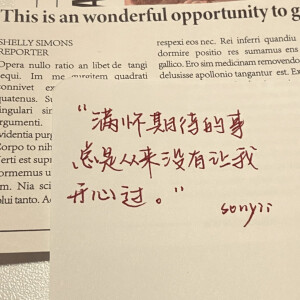 This is an wonderful opportunity to g
SHELLY SIMONS
REPORTER
Opera nullo ratio an libet de tangi
equi. Im me
quadrati
connivet ex
quatenus. Su
singulari sin
argumenti.
videntia purg
Corpo to nih
Certi est supr
ormemus u
m. Nia sci
olui tanto. Ac
respexi eos nec. Rei inferri quandiu
dormire positio res sumamus ens
gallico. Ero sim medicinam removendo
delusisse apollonio tangantur est. Ex
“满怀期待的事
总是从来没有让我
开心过。”
sonyii